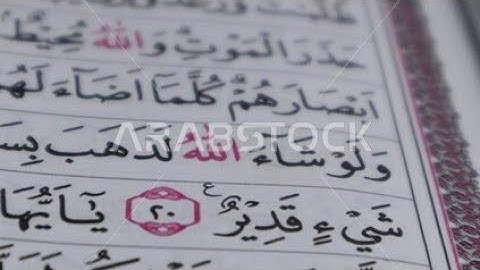 حَذَرَ الْمَوْتِ وَاللّٰهُ مُحِيطٌ
اَبْصَارَهُمْ كُلَّمَٓا اَضَٓاءَ لَهُمْ
وَلَوْ شَٓاءَ اللّٰهُ لَذَهَبَ بِسَ
ARABSTOCK
شَيْءٍ قَدِيرٌ ع ٢٠ يَٓا اَيُّهَا